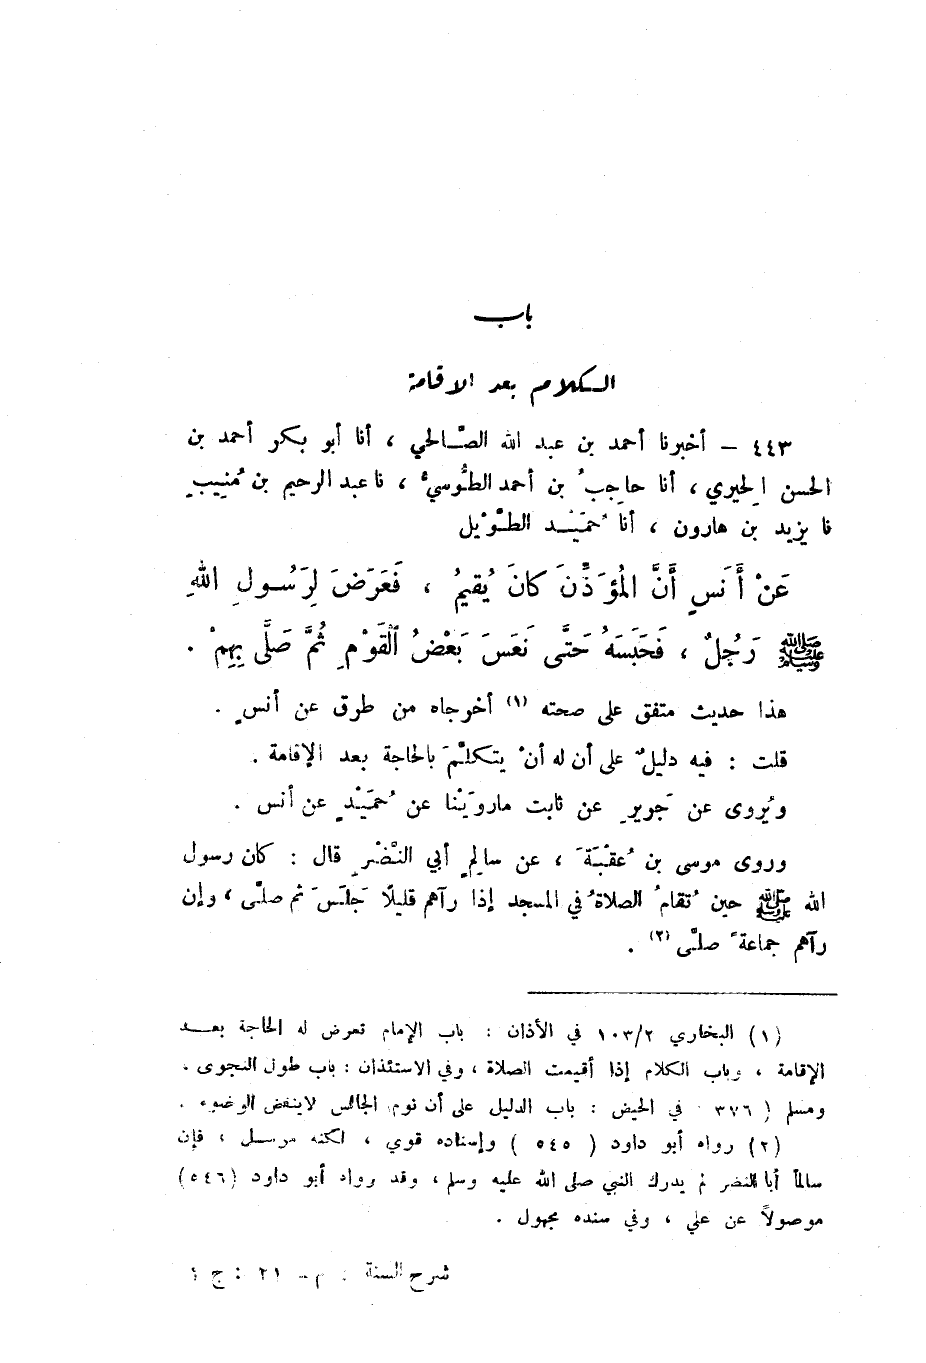 باب
الكلام بعد الاقامة
٤٤٣ – أخبرنا أحمد بن عبد الله الصّالحي ، أنا أبو بكر أحمد بن
الحسن الحِيري ، أنا حاجِبُ بن أحمد الطُّوسيُّ ، نا عبد الرحيم بن مُنِيبٍ
نا يزيد بن هارون ، أنا حُمَيْد الطّوْيل
عَنْ أَنَسٍ أَنَّ المُؤَذِّنَ كانَ يُقيمُ ، فَعَرَضَ لِرَسُولِ اللهِ
ﷺ رَجُلٌ ، فَحَبَسَهُ حَتَّى نَعَسَ بَعْضُ القَوْمِ ثُمَّ صَلَّى بِهِمْ .
هذا حديث متفق على صحته (١) أخرجاه من طرق عن أنسٍ .
قلت : فيه دليلٌ على أن له أنْ يتكلّمَ بالحاجة بعد الإقامة .
ويُروى عن جَريرِ عن ثابت مارويْنا عن حُمَيْدٍ عن أنس .
وروى موسى بن عُقْبَةَ ، عن سالمٍ أبي النّضْرِ قال : كان رسول
الله ﷺ حين تُقامُ الصلاةُ في المسجد إذا رآهم قليلًا جَلَسَ ثم صلّى ، وإن
رآهم جماعةً صلّى (٢) .
(١) البخاري ١٠٣/٢ في الأذان : باب الإمام تعرض له الحاجة بعد
الإقامة ، وباب الكلام إذا أقيمت الصلاة ، وفي الاستئذان : باب طول النجوى .
ومسلم ( ٣٧٦ في الحيض : باب الدليل على أن نوم الجالس لاينقض الوضوء .
(٢) رواه أبو داود ( ٥٤٥ ) وإسناده قوي ، لكنه مرسل ، فإن
سالماً أبا النضر لم يدرك النبي صلى الله عليه وسلم ، وقد رواه أبو داود (٥٤٦)
موصولاً عن علي ، وفي سنده مجهول .
شرح السنة : م – ٢١ : ج ٢